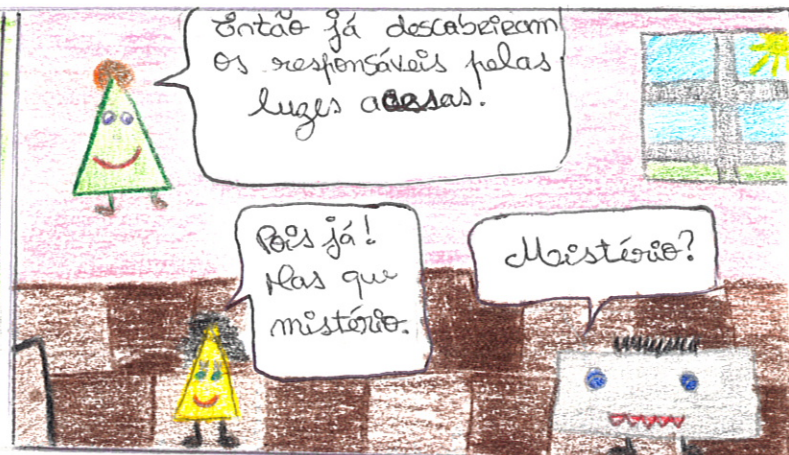 Então já descobriram
os responsáveis pelas
luzes acesas!
Pois já!
Mas que
mistério.
Mistério?